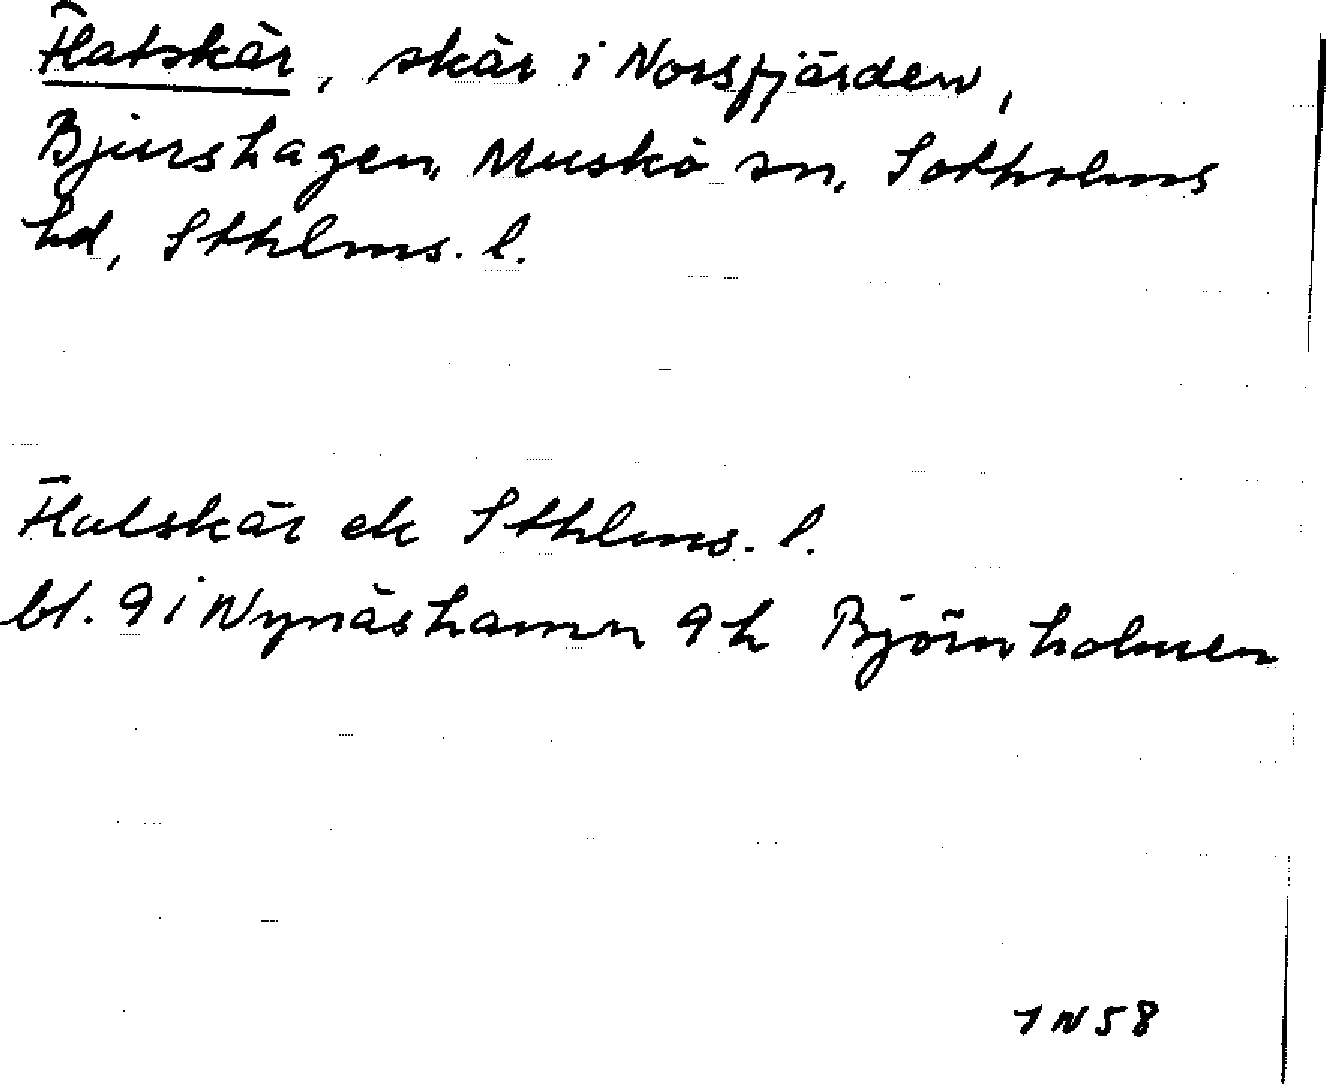 Flatskär, skär i Norsfjärden,
Bjurshagen, Muskö sn, Sotholms
hd, Sthlms. l.
Flatskär ek Sthlms. l.
bl. 9 i Nynäshamn 9 h Björnholmen
IN 58